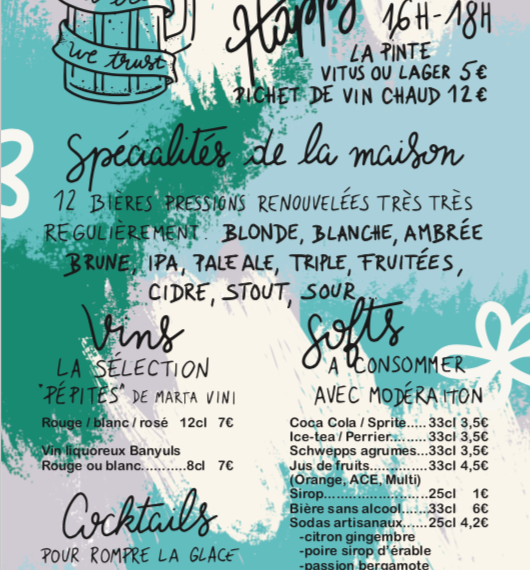 we trust
Happy 16H-18H
LA PINTE
VITUS OU LAGER 5€
PICHET DE VIN CHAUD 12€
Spécialités de la maison
12 BIÈRES PRESSIONS RENOUVELÉES TRÈS TRÈS
REGULIÈREMENT: BLONDE, BLANCHE, AMBRÉE
BRUNE, IPA, PALE ALE, TRIPLE, FRUITÉES,
CIDRE, STOUT, SOUR
Vins
LA SÉLECTION
"PÉPITES" DE MARTA VINI
Rouge / blanc / rosé 12cl 7€
Vin liquoreux Banyuls
Rouge ou blanc...........8cl 7€
Softs
A CONSOMMER
AVEC MODÉRAITON
Coca Cola / Sprite.....33cl 3,5€
Ice-tea / Perrier.........33cl 3,5€
Schwepps agrumes...33cl 3,5€
Jus de fruits..............33cl 4,5€
(Orange, ACE, Multi)
Sirop.........................25cl 1€
Bière sans alcool......33cl 6€
Sodas artisanaux......25cl 4,2€
-citron gingembre
-poire sirop d'érable
-passion bergamote
Cocktails
POUR ROMPRE LA GLACE